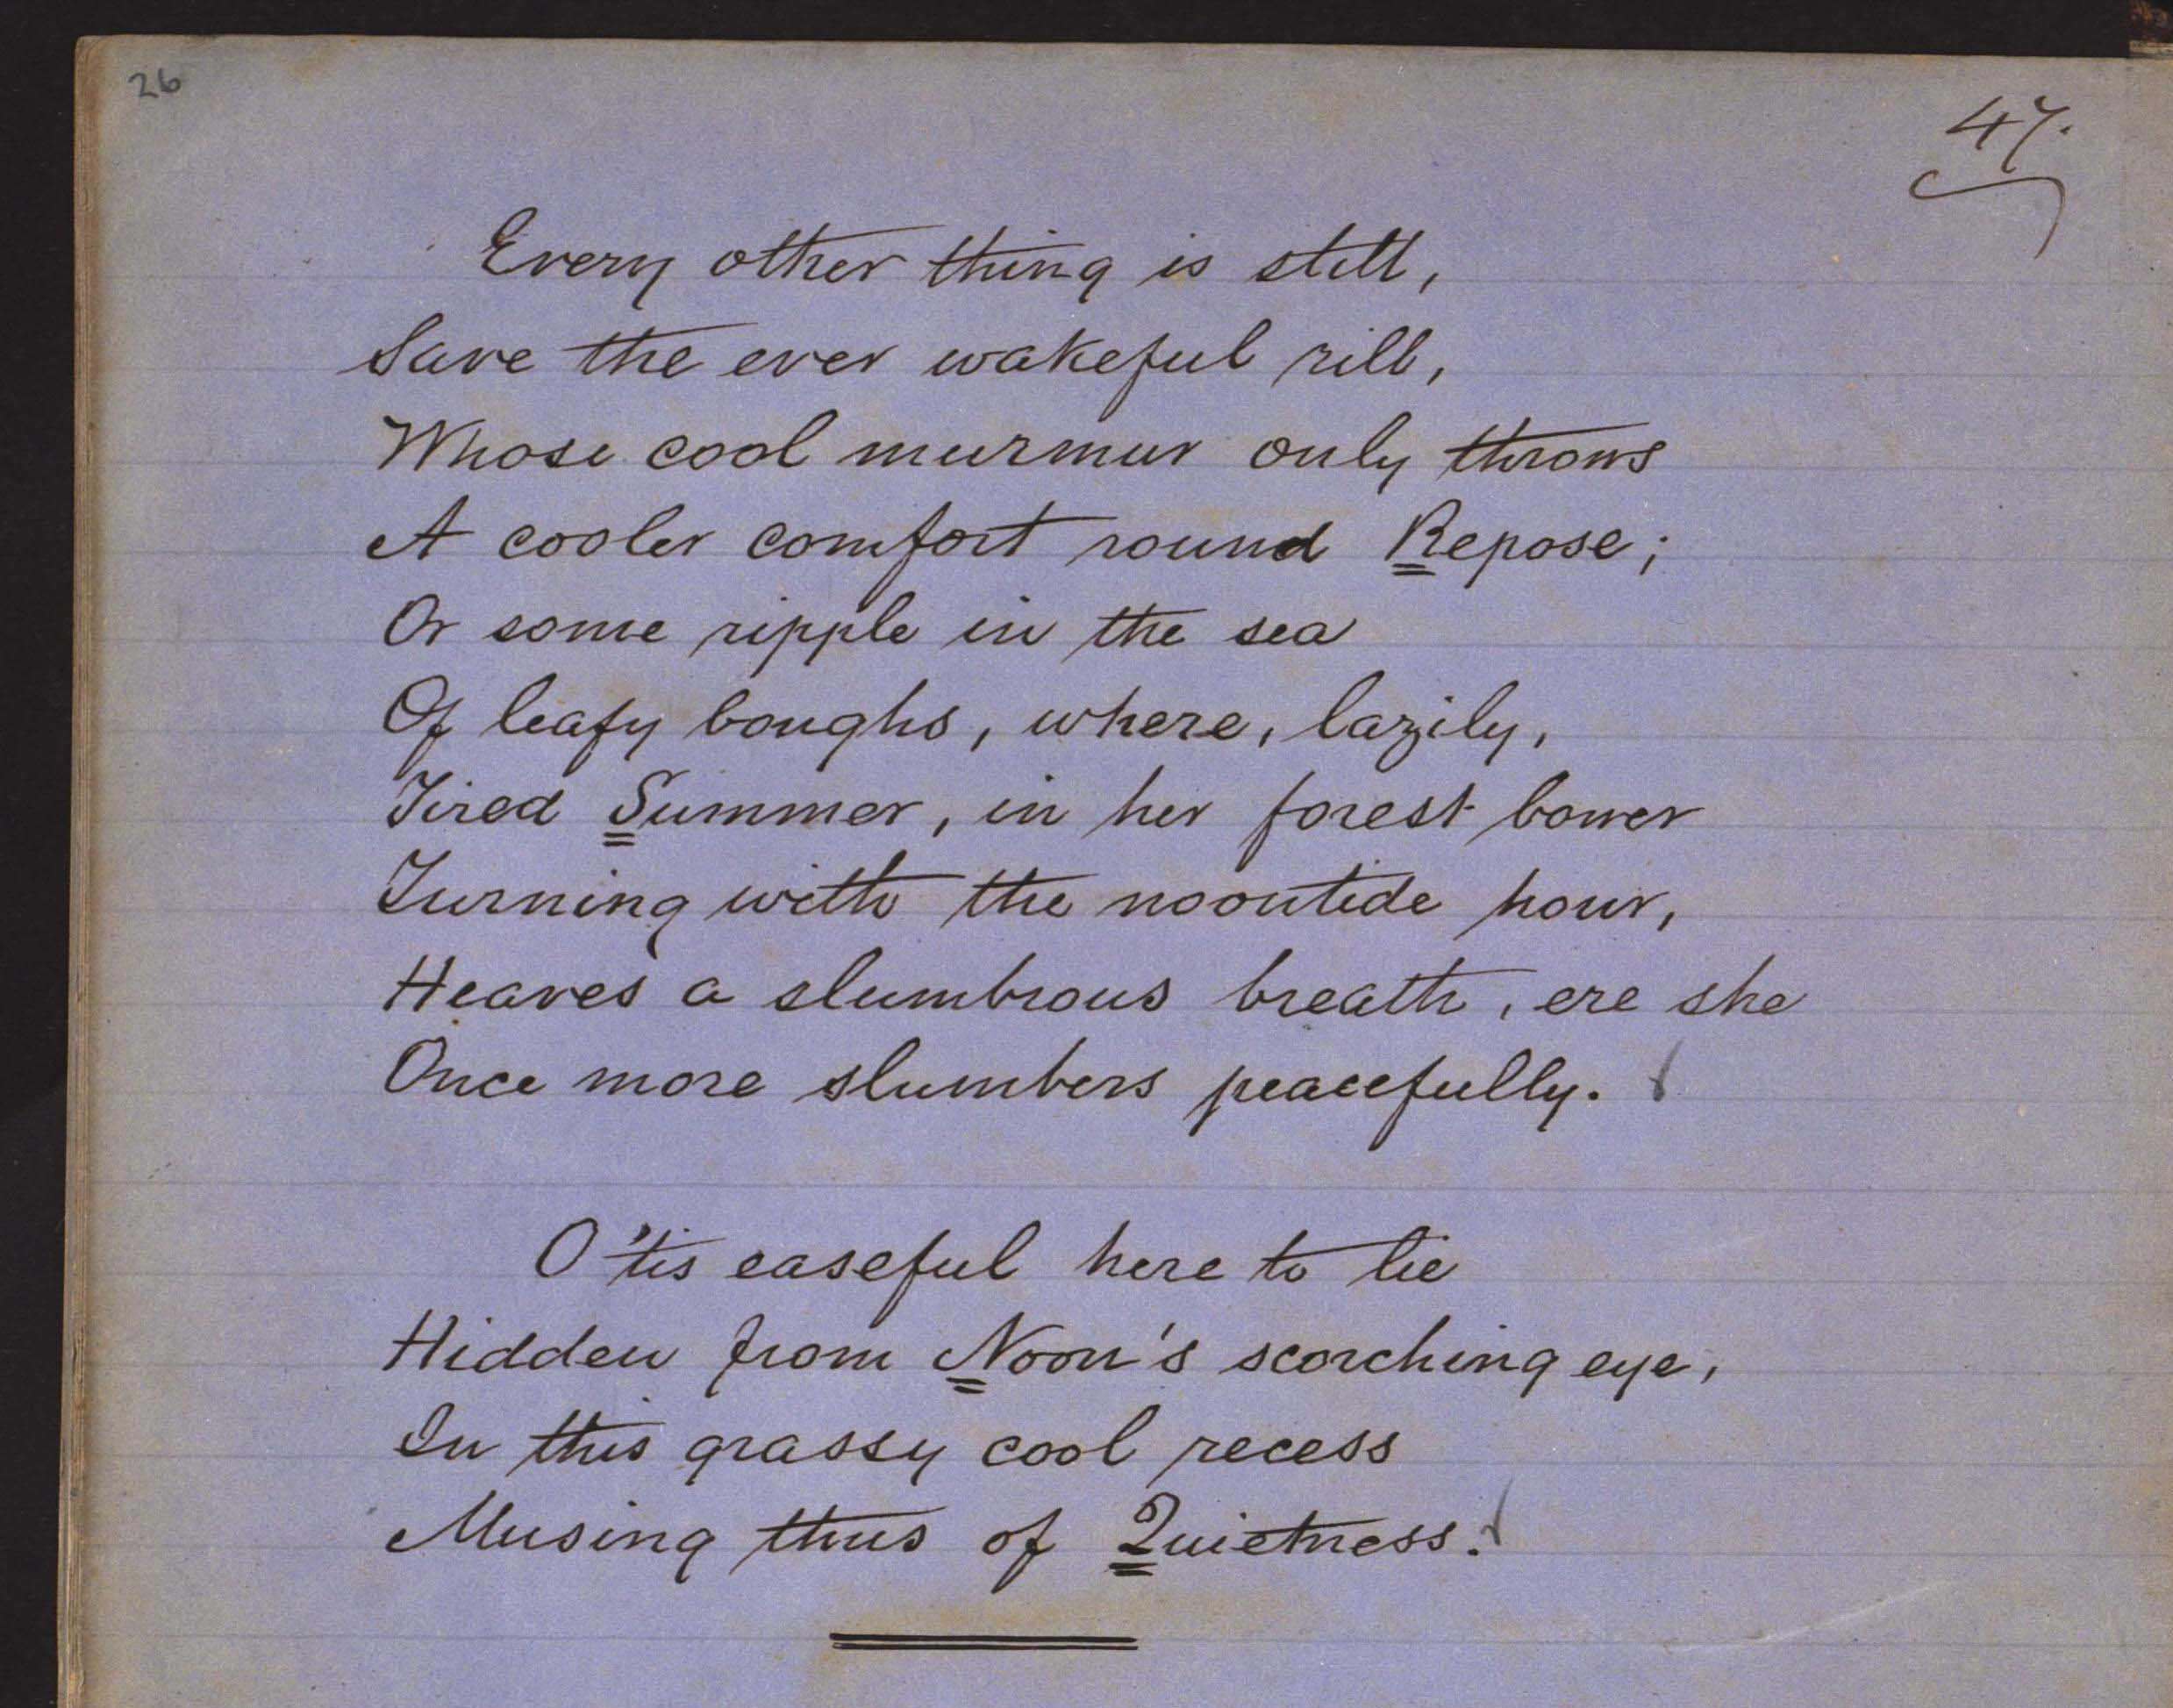 26
47.
Every other thing is still,
Save the ever wakeful rill,
Whose cool murmur only throws
A cooler comfort round Repose;
Or some ripple in the sea
Of leafy boughs, where, lazily,
Tired Summer, in her forest bower
Turning with the noontide hour,
Heaves a slumbrous breath, ere she
Once more slumbers peacefully.
O 'tis easeful here to lie
Hidden from Noon's scorching eye,
In this grassy cool recess
Musing thus of Quietness.